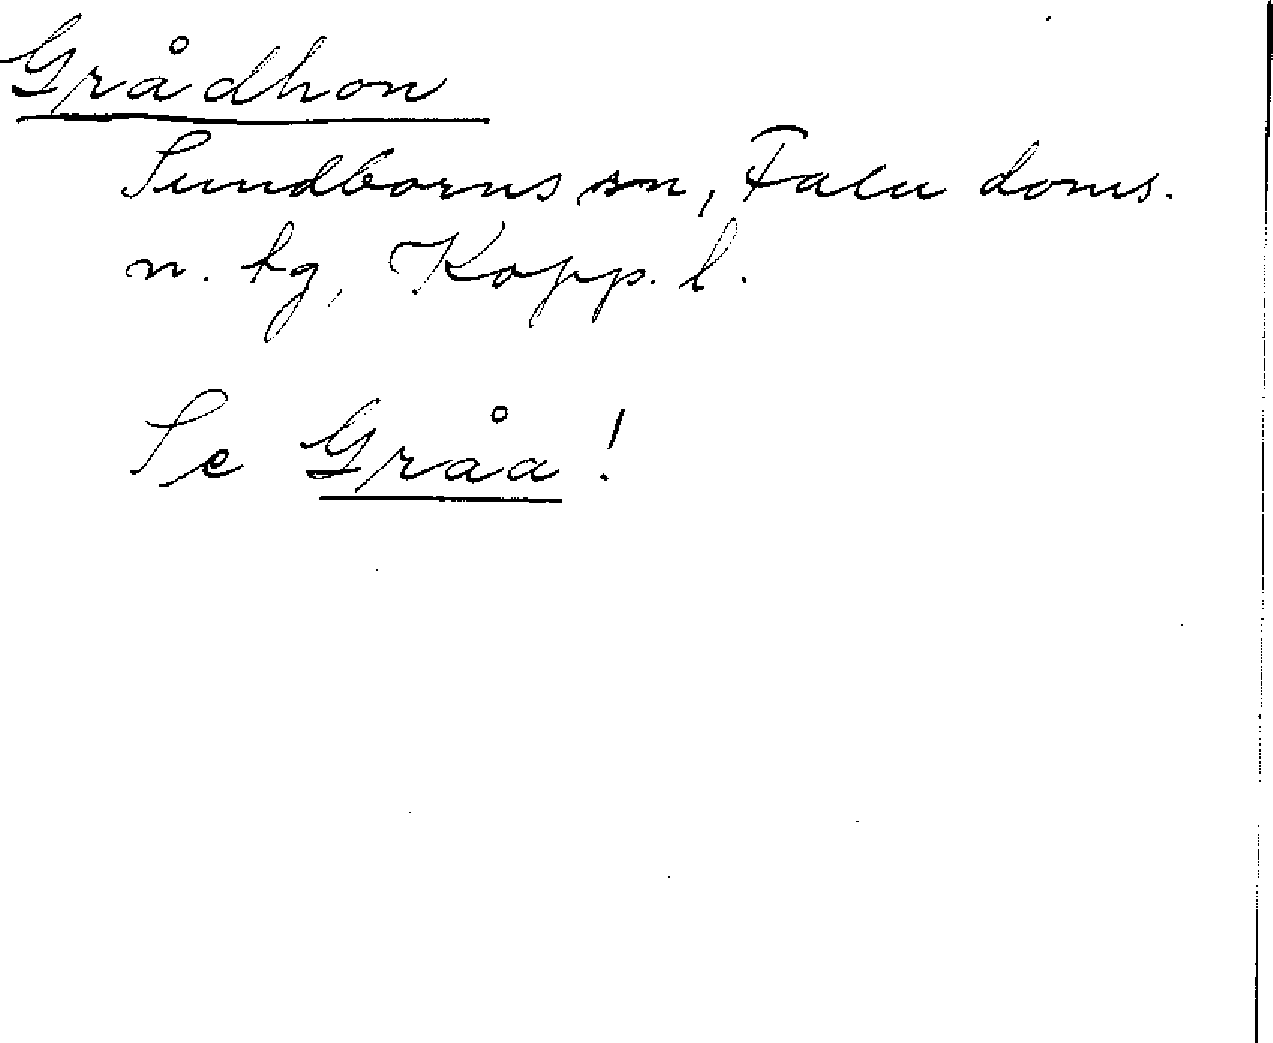 Grådhon
Sundborns sn, Falu doms.
n. tg, Kopp. l.
Se Gråa!